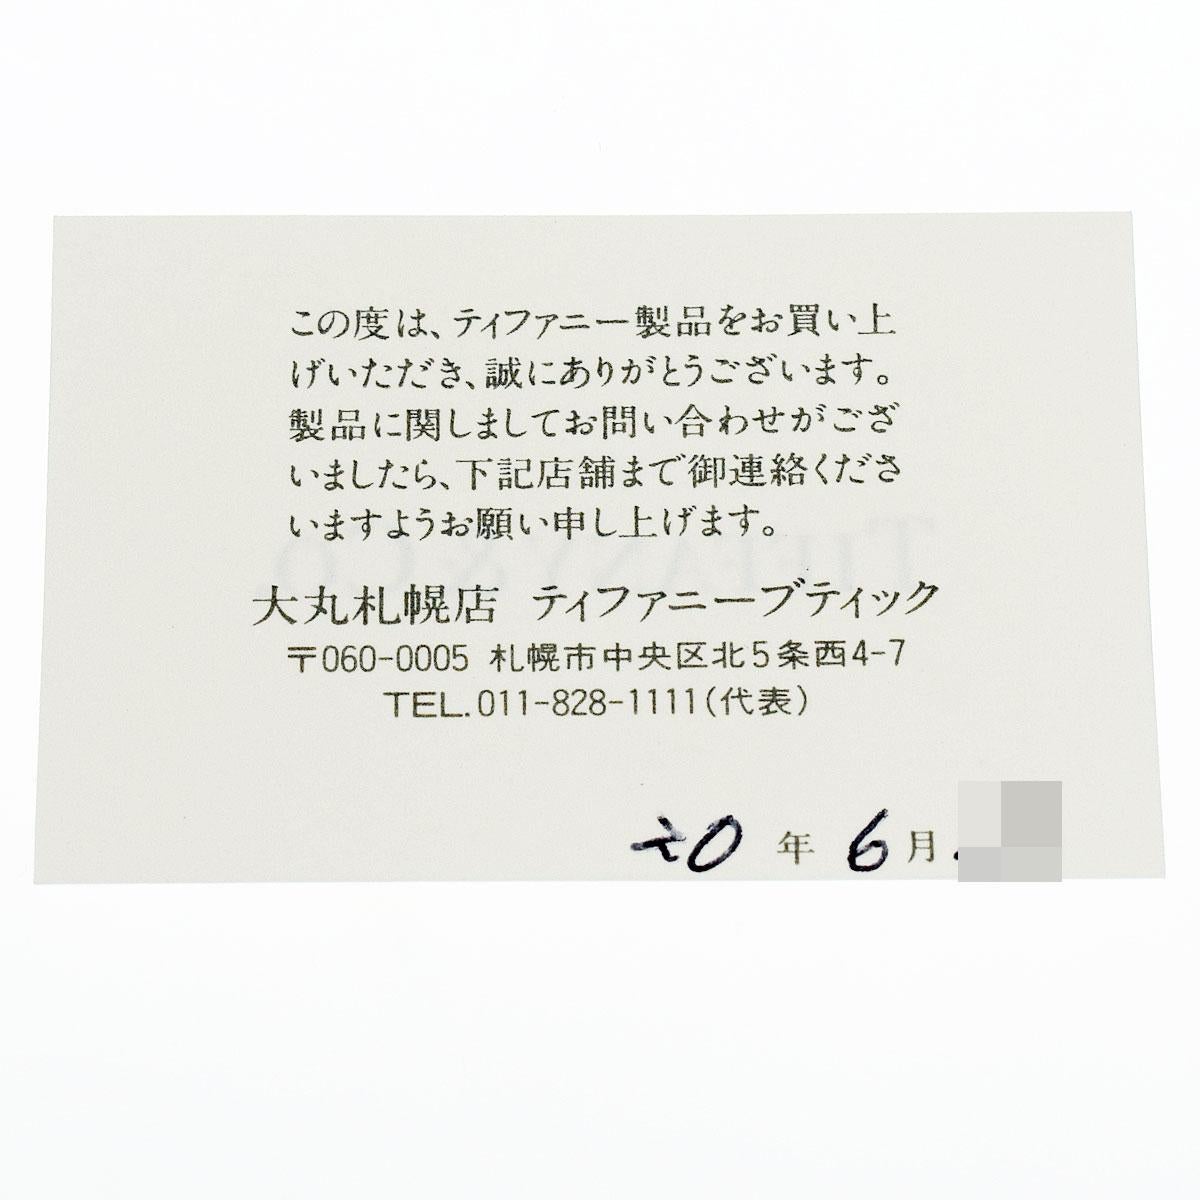 この度は、ティファニー製品をお買い上
げいただき、誠にありがとうございます。
製品に関しましてお問い合わせがござ
いましたら、下記店舗まで御連絡くださ
いますようお願い申し上げます。
大丸札幌店 ティファニーブティック
〒060-0005 札幌市中央区北5条西4-7
TEL.011-828-1111(代表)
20 年 6 月